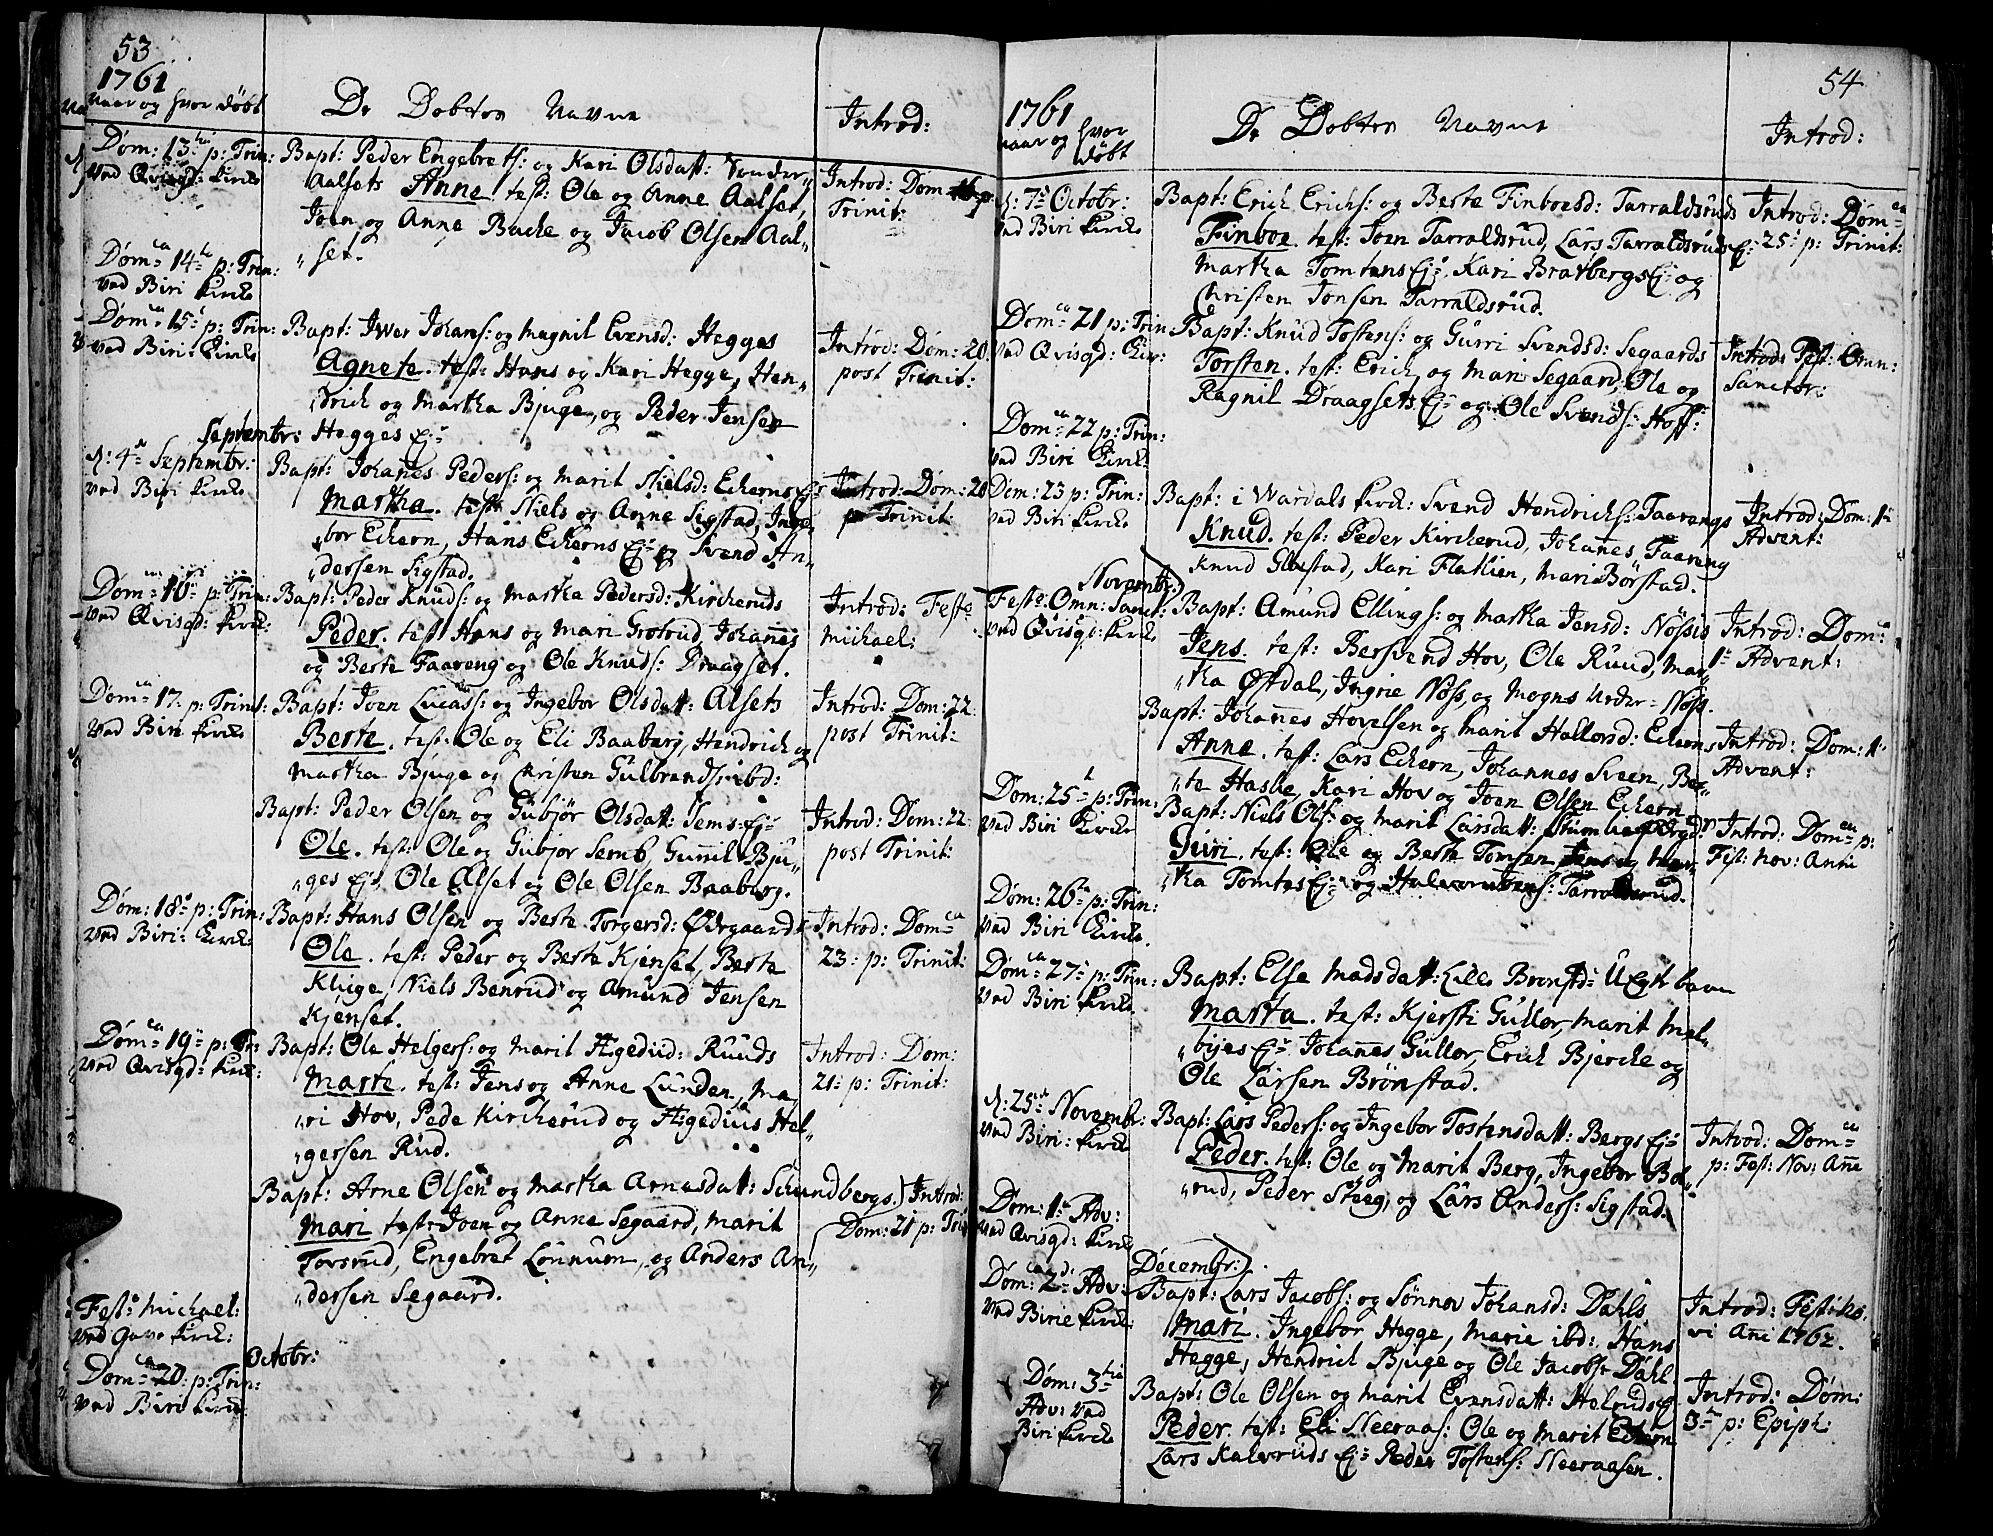 53
1761
naar og hvor døbt
De Døbtes Navne
Introd:
Dom: 13 p: Trin:
ved Qvisgd: kirke
Bapt: Peder Engebrets: og Kari Olsdatt: Sønder
Aalsets Anne. test: Ole og Anne Aalset,
Joen og Anne Bache og Jacob Olsen Aal„
„set.
Introd: Dom: 16 p:
Trinit:
Domca 14 p: Trin:
ved Biri kirke
Domca 15 p: Trin:
ved Biri: kirke
Bapt: Iwer Johans: og Magnil Evensd: Hegges
Agnete. test: Hans og Kari Hegge, Hen„
„drich og Martha Bjuge, og Peder Jensen
Hegges Ej:
Introd: Dom: 20
post Trinit:
Septembr:
d: 4 Septembr:
ved Biri kirke
Bapt: Johanes Peders: og Marit Nielsd: Eckerns Ej:
Martha. test: Niels og Anne Sigstad, Inge„
„bor Eckern, Hans Eckerns Ej: og Svend An„
„dersen Sigstad.
Introd: Dom: 20
p: Trinit:
Domca 16 p: Trin:
ved Qvisgd: kirke
Bapt: Peder Knuds: og Martha Pedersd: Kirckeruds
Peder. test: Hans og Mari Grøtrud, Johannes
og Berte Faareng og Ole Knuds: Draagset.
Introd: Festo
Michael:
Domca 17 p: Trinit:
ved Biri kirke
Bapt: Joen Lucass: og Ingebor Olsdatt: Alsets
Berte. test: Ole og Eli Baaberg, Hendrich og
Martha Bjuge og Christen Gulbrands: ibd:
Introd: Dom: 22
post Trinit:
Bapt: Peder Olsen og Gubjør Olsdatt: Sems: Ej:
Ole. test: Ole og Gubjor Semb, Gunnil Bju„
„ges Ej: Ole Alset og Ole Olsen Baaberg.
Introd: Dom: 22
post Trinit:
Dom: 18 p: Trin:
ved Biri: kirke
Bapt: Hans Olsen og Berte Torgersd: Ødegaards
Ole. test: Peder og Berte Kjenset, Berte
Kluge, Niels Benrud og Amund Jensen
Kjenset.
Introd: Domca
23 p: Trinit:
Domca 19 p: Tr:
ved Qvisgd: kirke:
Bapt: Ole Helgers: og Marit Ægedud: Ruuds
Marte. test: Jens og Anne Lunden, Ma„
„ri Hov, Pede Kirckerud og Ægedius Hel„
„gersen Rud.
Introd: Dom:
21 p: Trinit:
Bapt: Arne Olsen og Martha Arnesdatt: Schundbergs.
Mari test: Joen og Anne Segaard, Marit
Torsrud, Engebret Lonnum, og Anders An„
„dersen Segaard.
Introd:
Dom: 21 p: Tri
Festo Michael:
ved kirke:
Octobr:
Domca 20 p: Trin:
ved Biri kirke:
54
1761
naar og hvor
døbt
De Døbtes Navne
Introd:
d: 7 Octobr:
ved Biri kirke
Bapt: Erich Erichs: og Berte Finboesd: Tarraldsruds
Finboe. test: Joen Tarraldsrud, Lars Tarraldsruds Ej:
Martha Tomtens Ej: Kari Bratbergs Ej: og
Christen Jonsen Tarraldsrud.
Introd: Domca
25 p: Trinit:
Domca 21 p: Trin
ved Qvisgd: kir:
Bapt: Knud Tostens: og Gurri Svendsd: Segaards
Torsten. test: Erich og Mari Segaard, Ole og
Ragnil Draagsets Ej: og Ole Svends: Hoff:
Introd: Fest: Omn:
Sanctor:
Domca 22 p: Trin:
ved Biri kirke:
Dom: 23 p: Trin:
ved Biri kirke
Bapt: i Wardals kirk: Svend Hendrichs: Faarengs
Knud. test: Peder Kirckerud, Johannes Faareng
Knud Glæstad, Kari Flatlien, Mari Børstad.
Introd: Dom: 1
Advent:
Novembr:
Festo. Omn: Sanct:
ved Qvisgd: kirke
Bapt: Amund Ellings: og Martha Jensd: Nøssis
Jens. test: Bersvend Hov, Ole Ruud, Mar„
„tha Østdal, Ingrie Nøss, og Mogns Neder-Nøss.
Introd: Domca
1 Advent:
Bapt: Johannes Hovelsen og Marit Hallorsd: Eckerns
Anne. test: Lars Eckern, Johannes Sveen, Ber„
„te Hasle, Kari Hov og Joen Olsen Eckern
Introd: Dom: 1
Advent:
Dom: 25 p: Trin:
ved Biri kirke
Bapt: Niels Ols: og Marit Larsdatt:
Guri. test: Ole og Berte Tomten Jens og Mar„
„tha Tomtes Ej: og Tarraldsrud.
Introd: Domca p:
Fest: nov: Anni
Dom: 26 p: Trin:
ved Biri kirke.
Domca 27 p: Trin:
ved Biri kirke
Bapt: Else Madsdatt: Lille Bronstd: Uægte barn
Marta. test: Kjersti Gullør, Marit Mel„
„byes Ej: Johannes Gullor, Erich Bjercke og
Ole Larsen Brønstad.
d: 25 Novembr:
ved Biri: kirke
Bapt: Lars Peders: og Ingebor Tostensdatt: Bergs Ej:
Peder. test: Ole og Marit Berg, Ingebor Bol„
„rud, Peder Steeg, og Lars Anders: Sigstad.
Introd: Domca
p: Fest: Nov: Añe
Dom: 1 Adv:
ved Qvisgd: kirke
Decembr:
Domca 2 Adv:
ved Birie kirke:
Bapt: Lars Jacobs: og Sønnov Johansd: Dahls
Mari. Ingebor Hegge, Marie ibd: Hans
Hegge, Hendrich Bjuge og Ole Jacobs: Dahl
Introd: Festo No„
vi Añi 1762.
Dom: 3
Adv: ved
Biri kirke
Bapt: Ole Olsen og Marit Evensdatt:
Peder. test: Eli Neeraas: Ole og Marit Eckern
Lars Kalveruds Ej: Peder Tostens: Neeraasen.
Introd: Dom:
3 p: Epiph: